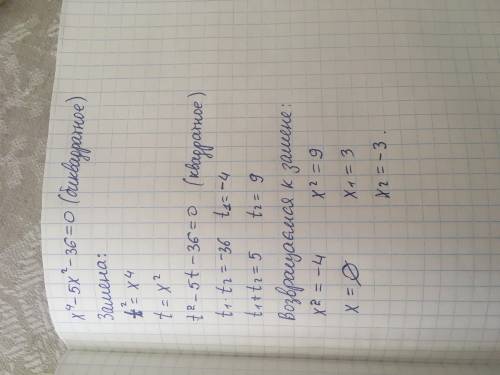 x⁴-5x²-36=0 (биквадратное)
Замена:
t² = x⁴
t = x²
t²-5t-36=0 (квадратное)
t₁·t₂=-36 t₁=-4
t₁+t₂=5 t₂=9
Возвращаемся к замене:
x²=-4 x²=9
x=∅ x₁=3
x₂=-3.